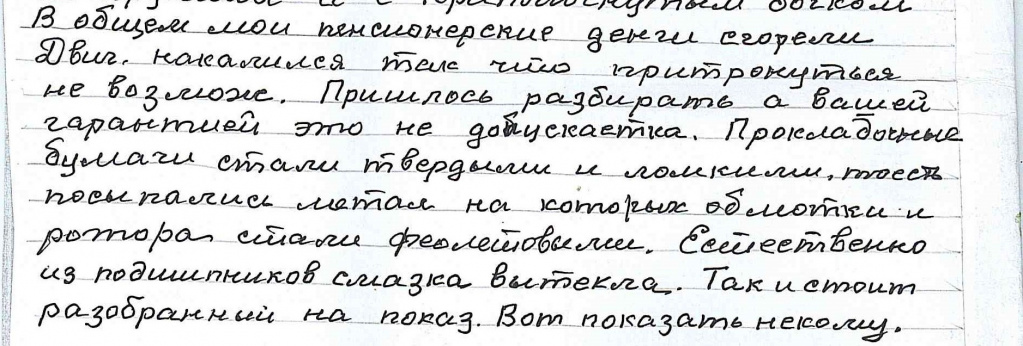 В общем мои пенсионерские денги сгорели
Двиг. накалился так что притронуться
не возмож. Пришлось разбирать а вашей
гарантией это не допускаетка. Прокладочные
бумачи стали твердыми и ломкими, тоесть
посыпались метал на которых обмотки и
ротора стали феолетовыми. Естественно
из подшипников смазка вытекла. Так и стоит
разобранный на показ. Вот показать некому.